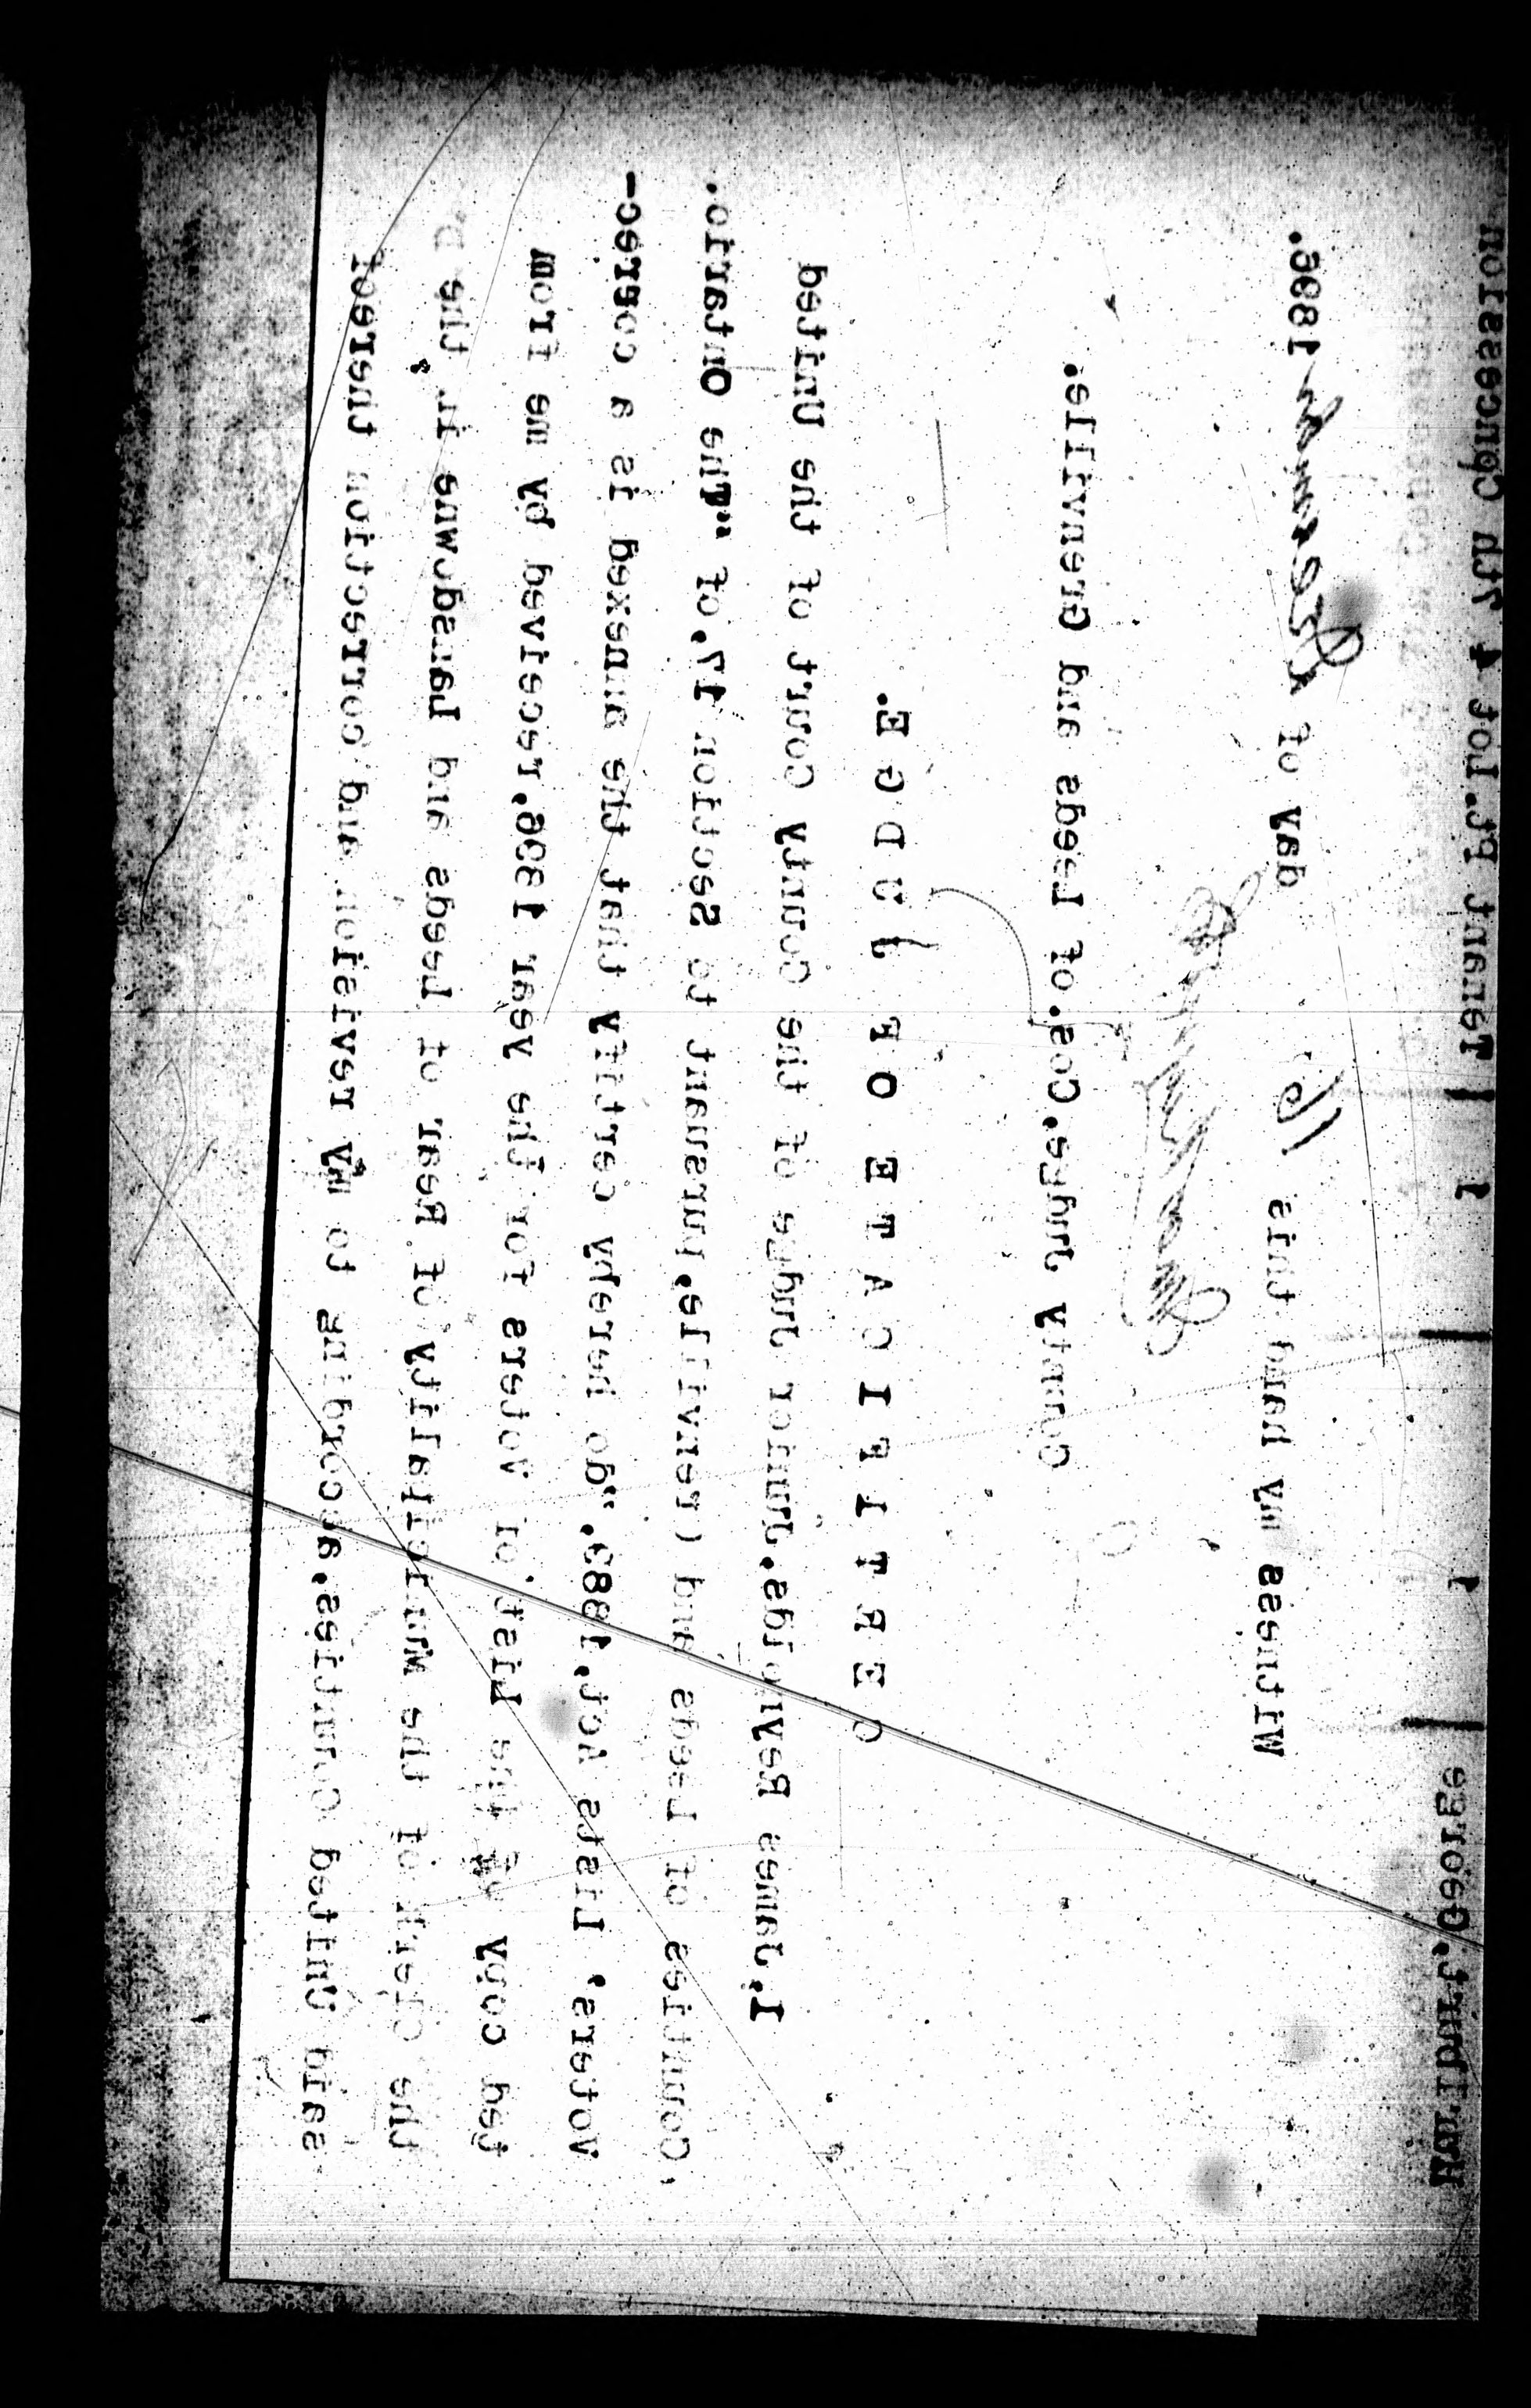 Hurlburt, George 1 1 1 Tenant Pt.lot 4 7th Concession
Witness my hand this 16 day of December 1896.
County Judge,Cos.of Leeds and Grenville.
C E R T I F I C A T E O F J U D G E.
I,James Reynolds,Junior Judge of the County Court of the United
Counties of Leeds and Grenville,pursuant to Section 17,of "The Ontario.
Voters' Lists Act,1889,"do hereby certify that the annexed is a correc-
ted copy of the List of Voters for the year 1896,received by me from
the Clerk of the Municipality of Rear of Leeds and Lansdowne in the
said United Counties,according to my revision and correction thereof